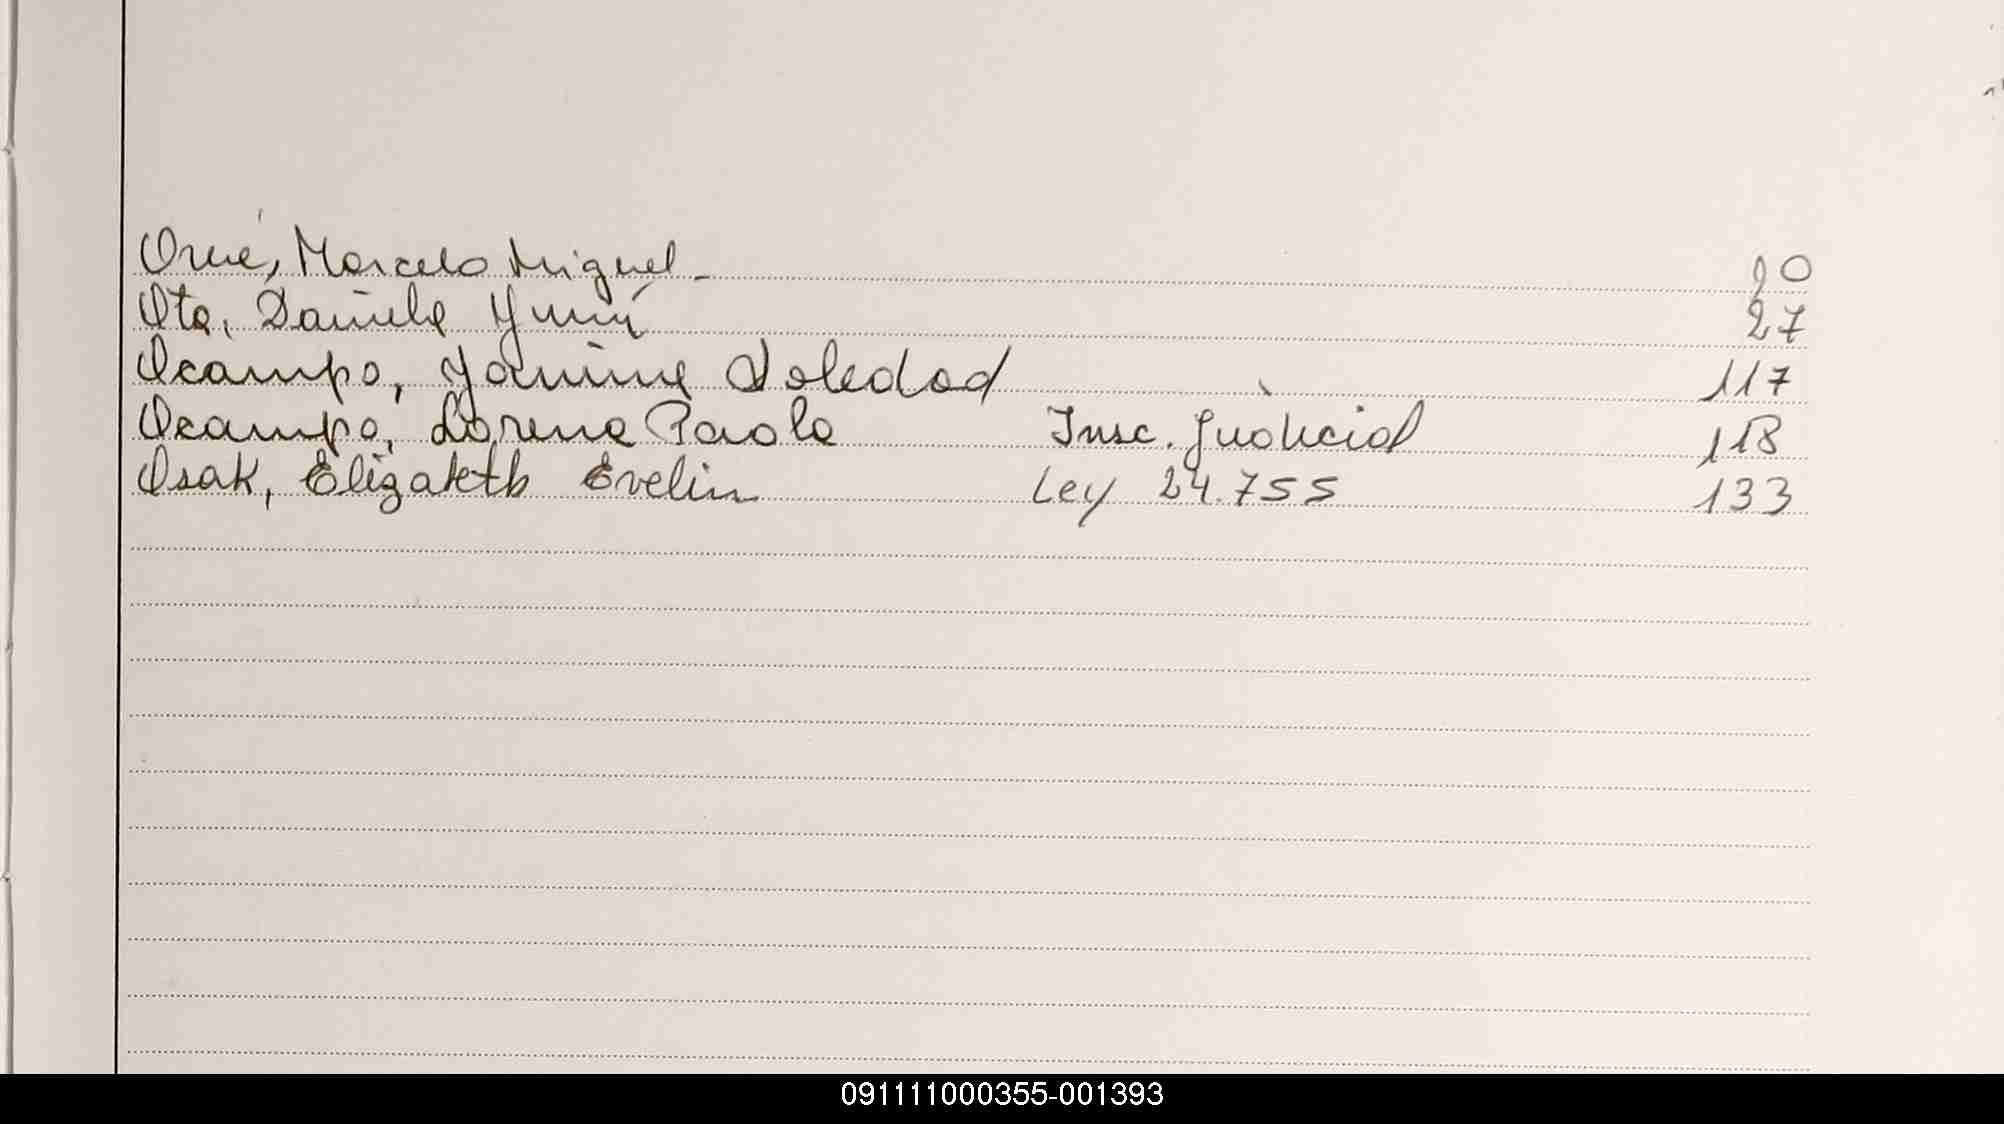 Orué, Marcelo Miguel - 20
Ota, Daniela Yumí 27
Ocampo, Yanina Soledad 117
Ocampo, Lorena Paola Insc. Judicial 118
Osak, Elizabeth Evelin Ley 24.755 133
091111000355-001393